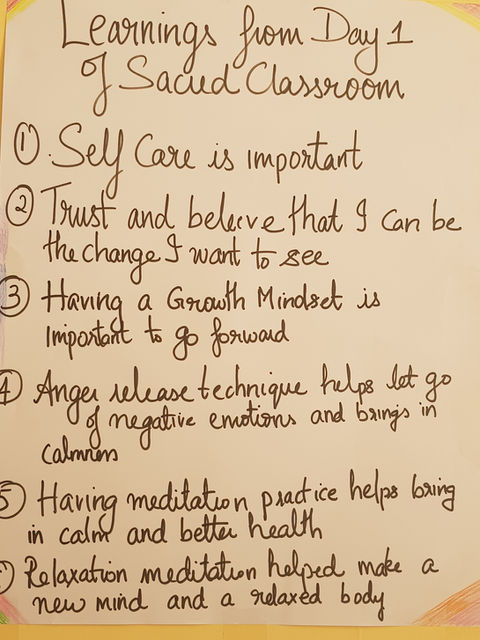 Learnings from Day 1
of Sacred Classroom
① Self Care is important
② Trust and beleive that I can be
the change I want to see
③ Having a Growth Mindset is
important to go forward
④ Anger release technique helps let go
of negative emotions and brings in
calmness
⑤ Having meditation practice helps bring
in calm and better health
Relaxation meditation helped make a
new mind and a relaxed body